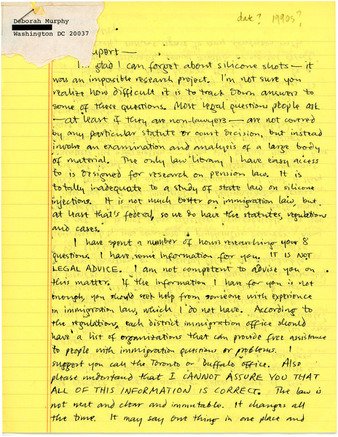 Deborah Murphy
Washington DC 20037
date? 1990s?
pert —
I... glad I can forget about silicone shots — it
was an impossible research project. I'm not sure you
realize how difficult it is to track down answers to
some of these questions. Most legal questions people ask
— at least if they are non-lawyers — are not covered
by any particular statute or court decision, but instead
involve an examination and analysis of a large body
of material. The only law library I have easy access
to is designed for research on pension law. It is
totally inadequate to a study of state law on silicone
injections. It is not much better on immigration law but
at least that's federal, so we do have the statutes, regulations
and cases.
I have spent a number of hours researching your 8
questions. I have some information for you. IT IS NOT
LEGAL ADVICE. I am not competent to advise you on
this matter. If the information I have for you is not
enough, you should seek help from someone with experience
in immigration law, which I do not have. According to
the regulations, each district immigration office should
have a list of organizations that can provide free assistance
to people with immigration questions or problems. I
suggest you call the Toronto or Buffalo office. Also
please understand that I CANNOT ASSURE YOU THAT
ALL OF THIS INFORMATION IS CORRECT. The law is
not neat and clear and immutable. It changes all
the time. It may say one thing in one place and